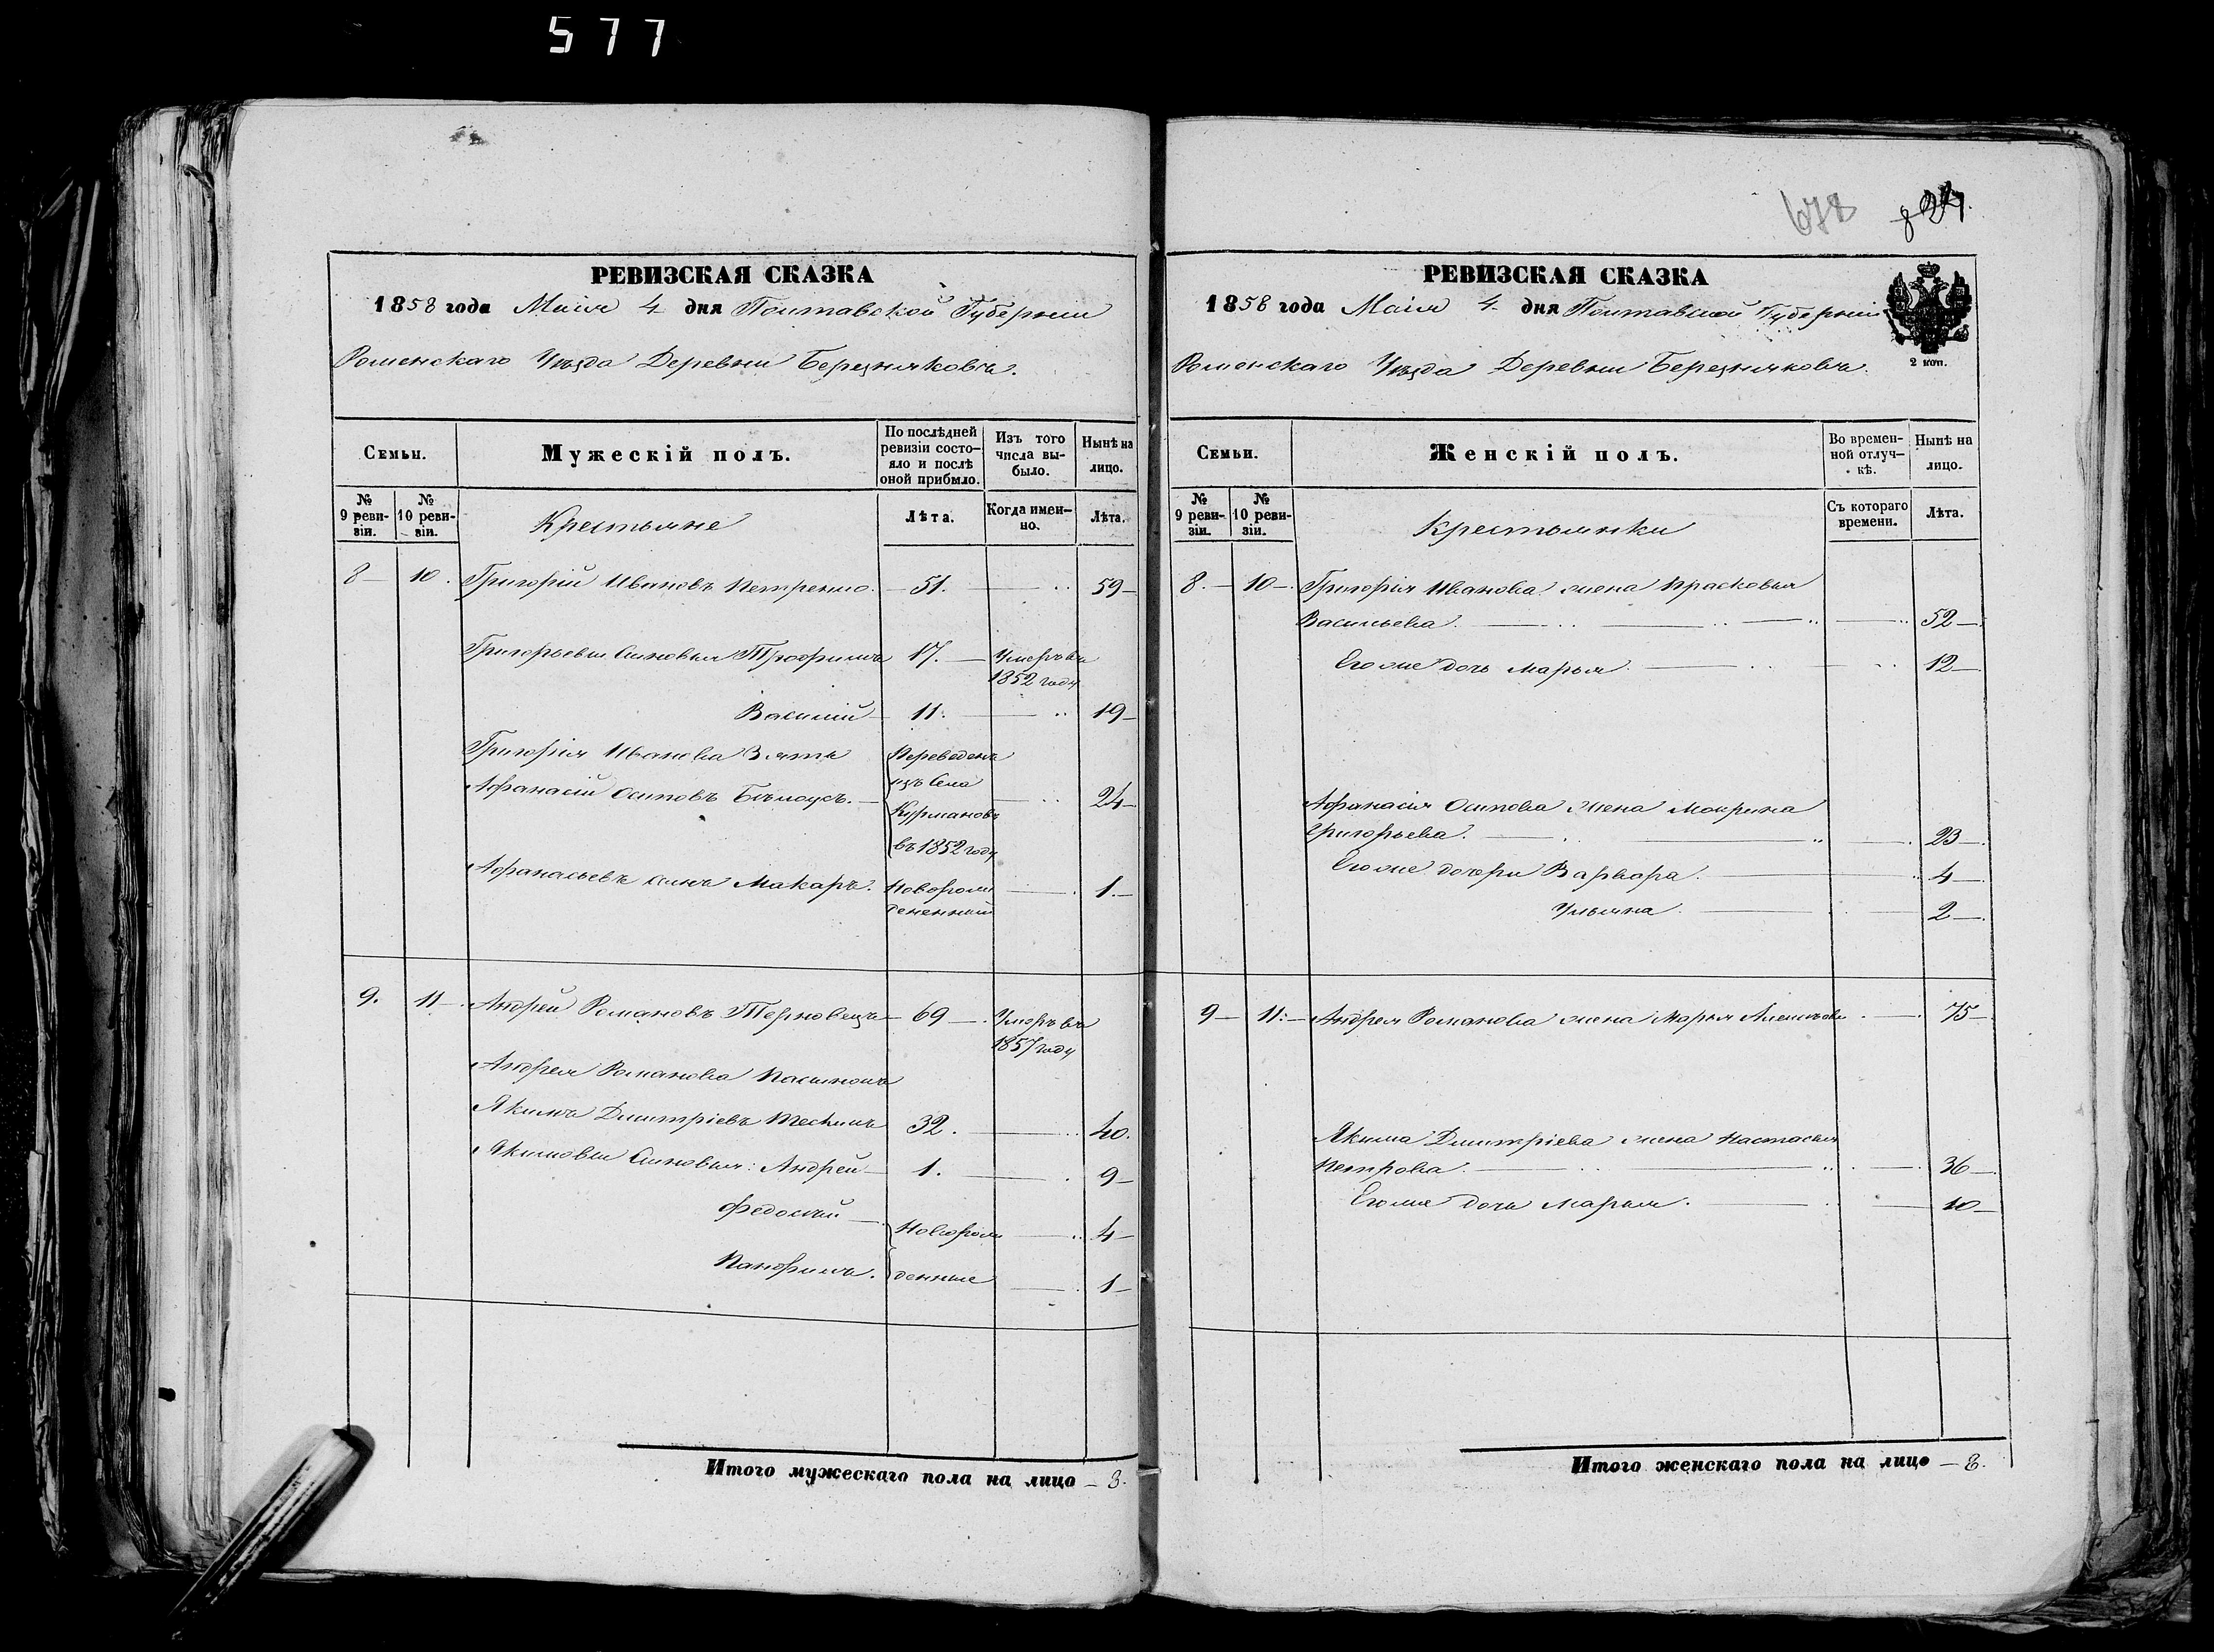 577
678
РЕВИЗСКАЯ СКАЗКА
1858 года Маія 4 дня Полтавской Губерніи
Роменскаго Уѣзда Деревни Березняковъ.
Семьи.
Мужескій полъ.
По послѣдней ревизіи состояло и послѣ оной прибыло.
Изъ того числа выбыло.
Нынѣ на лицо.
№ 9 ревизіи.
№ 10 ревизіи.
Крестьяне
Лѣта.
Когда именно.
Лѣта.
8 — 10. Григорій Ивановъ Петренко. — 51. — 59 —
Григорьевы Сыновья Трофимъ 17. — Умеръ въ
1852 году
Василій — 11. — 19 —
Григорія Иванова Зять Переведенъ
изъ Села
Афанасій Осиповъ Бѣлоусъ. — 24 —
Курмановъ
въ 1852 году
Афанасьевъ сынъ Макаръ. Новорож — 1. —
денный
9. 11 — Андрей Романовъ Терновецъ — 69 — Умеръ въ
1857 году
Андрея Романова Пасынокъ
Якимъ Дмитріевъ 32. — 40.
Якимовы Сыновья: Андрей — 1. — 9 —
Федосій — Новорож — 4 —
Панфилъ. денные — 1 —
Итого мужескаго пола на лицо — 8.
РЕВИЗСКАЯ СКАЗКА
1858 года Маія 4 дня Полтавской Губерніи
2 коп.
Роменскаго Уѣзда Деревни Березняковъ.
Семьи.
Женскій полъ.
Во временной отлучкѣ.
Нынѣ на лицо.
№ 9 ревизіи.
№ 10 ревизіи.
Крестьянки
Съ котораго времени.
Лѣта.
8. — 10 — Григорія Иванова жена Прасковья
Васильева. — 52 —
Его же дочь Марья — 12 —
Афанасія Осипова жена Мокрина
Григорьева. — 23 —
Его же дочери Варвара. — 4 —
Ульяна. — 2 —
9 — 11. — Андрея Романова жена Марья — 75 —
Якима Дмитріева жена Настасья
Петрова. — 36 —
Его же дочь Марья. — 10 —
Итого женскаго пола на лицо — 8.